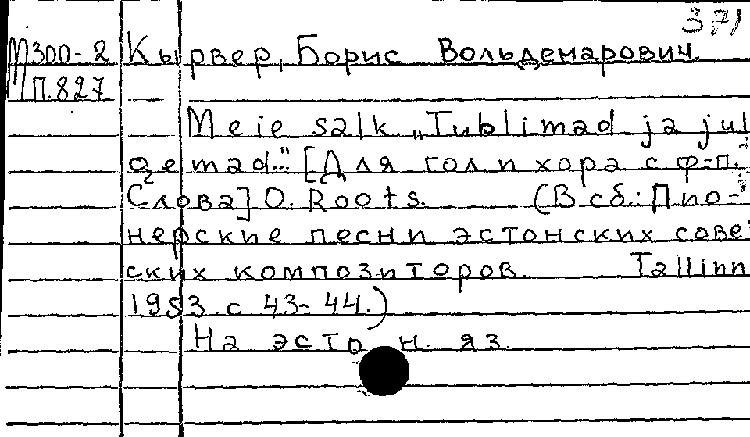 371
М300-2 Кырвер, Борис Вольдемарович.
П.827
Meie salk „Tublimad ja jul
gemad." [Для гол и хора с ф-п.
Слова] O. Roots. (В сб.: Пио-
нерские песни эстонских сове-
ских композиторов. Tallinn
1953. с 43-44.)
На эстон. яз.